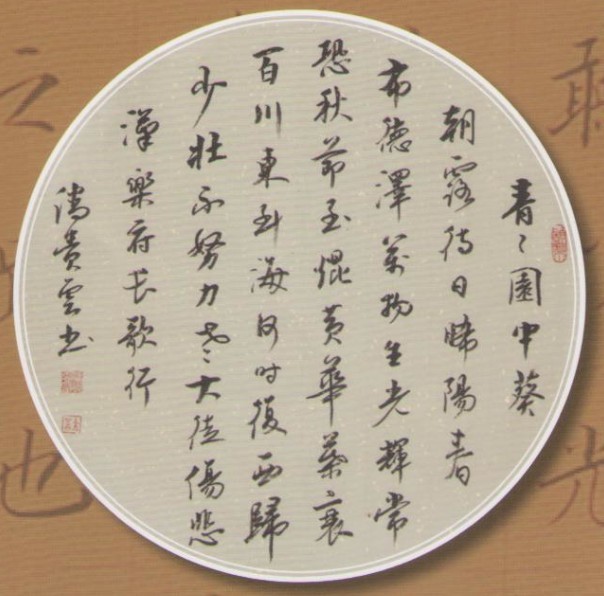 青々園中葵
朝露待日晞陽春
布德澤萬物生光輝常
恐秋節至焜黃華葉衰
百川東到海何時復西歸
少壯不努力老大徒傷悲
漢樂府長歌行
潘貴雲書